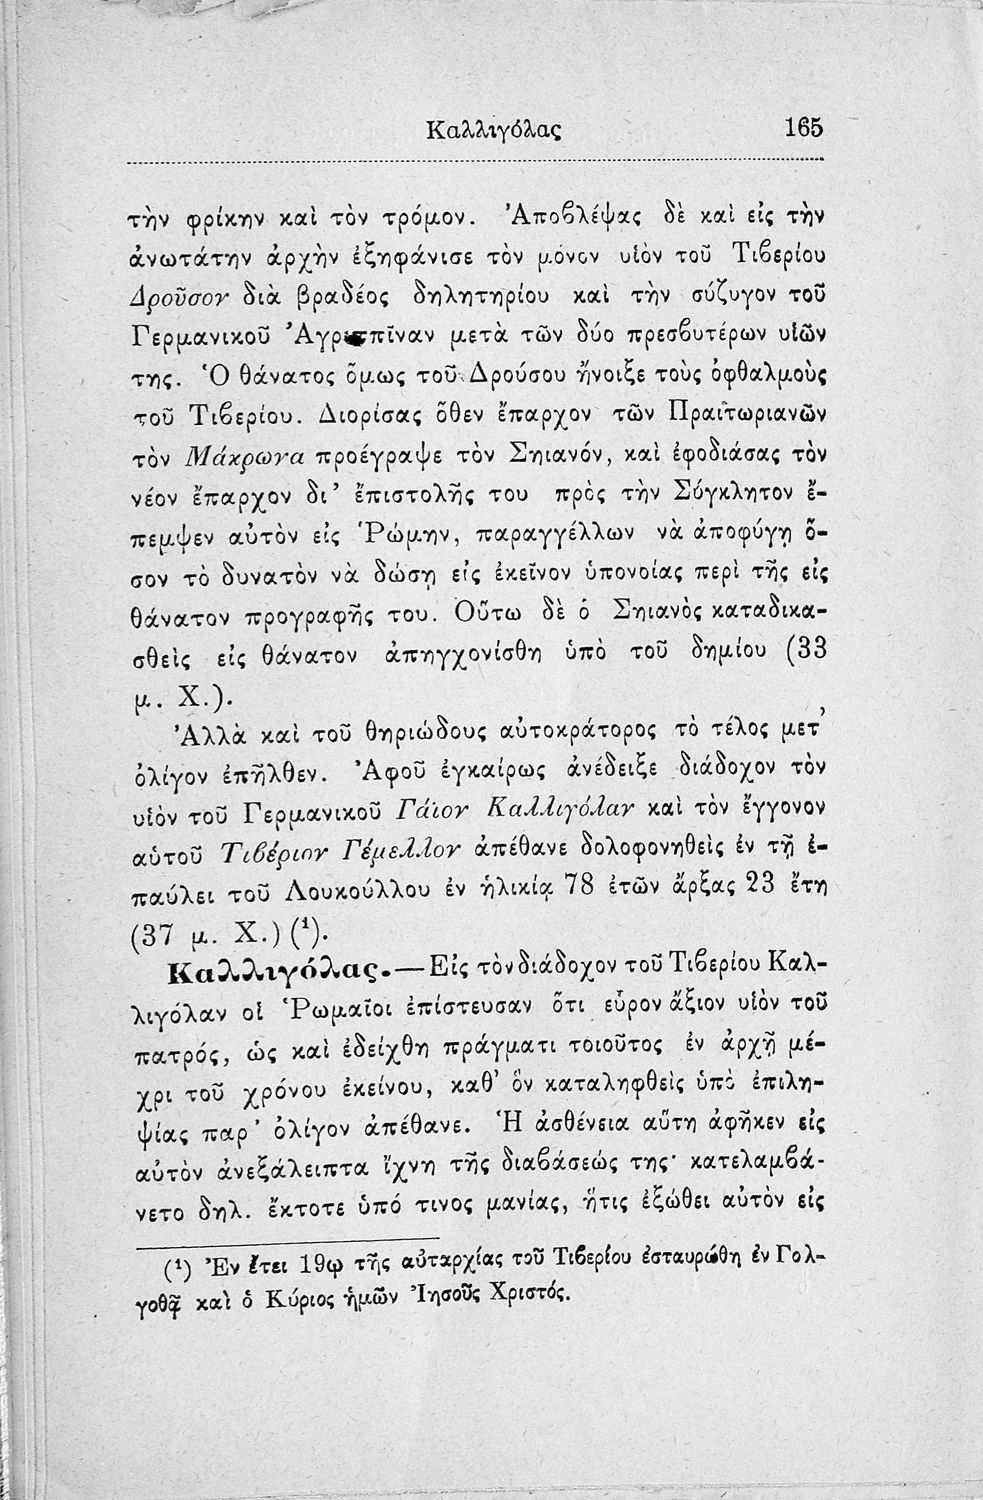 Καλλιγόλας 165
τὴν φρίκην καὶ τὸν τρόμον. Ἀποβλέψας δὲ καὶ εἰς τὴν
ἀνωτάτην ἀρχὴν ἐξηφάνισε τὸν μόνον υἱὸν τοῦ Τιβερίου
Δροῦσον διὰ βραδέος δηλητηρίου καὶ τὴν σύζυγον τοῦ
Γερμανικοῦ Ἀγριππῖναν μετὰ τῶν δύο πρεσβυτέρων υἱῶν
της. Ὁ θάνατος ὅμως τοῦ Δρούσου ἤνοιξε τοὺς ὀφθαλμοὺς
τοῦ Τιβερίου. Διορίσας ὅθεν ἔπαρχον τῶν Πραιτωριανῶν
τὸν Μάκρωνα προέγραψε τὸν Σηιανόν, καὶ ἐφοδιάσας τὸν
νέον ἔπαρχον δι’ ἔπιστολῆς του πρὸς τὴν Σύγκλητον ἔ-
πεμψεν αὐτὸν εἰς Ῥώμην, παραγγέλλων νὰ ἀποφύγῃ ὅ-
σον τὸ δυνατὸν νὰ δώσῃ εἰς ἐκεῖνον ὑπονοίας περὶ τῆς εἰς
θάνατον προγραφῆς του. Οὕτω δὲ ὁ Σηιανὸς καταδικα-
σθεὶς εἰς θάνατον ἀπηγχονίσθη ὑπὸ τοῦ δημίου (33
μ. Χ.).
Ἀλλὰ καὶ τοῦ θηριώδους αὐτοκράτορος τὸ τέλος μετ’
ὀλίγον ἐπῆλθεν. Ἀφοῦ ἐγκαίρως ἀνέδειξε διάδοχον τὸν
υἱὸν τοῦ Γερμανικοῦ Γάϊον Καλλιγόλαν καὶ τὸν ἔγγονον
αὑτοῦ Τιβέριον Γέμελλον ἀπέθανε δολοφονηθεὶς ἐν τῇ ἐ-
παύλει τοῦ Λουκούλλου ἐν ἡλικίᾳ 78 ἐτῶν ἄρξας 23 ἔτη
(37 μ. Χ.) (¹).
Καλλιγόλας.—Εἰς τὸν διάδοχον τοῦ Τιβερίου Καλ-
λιγόλαν οἱ Ῥωμαῖοι ἐπίστευσαν ὅτι εὗρον ἄξιον υἱὸν τοῦ
πατρός, ὡς καὶ ἐδείχθη πράγματι τοιοῦτος ἐν ἀρχῇ μέ-
χρι τοῦ χρόνου ἐκείνου, καθ’ ὃν καταληφθεὶς ὑπὸ ἐπιλη-
ψίας παρ’ ὀλίγον ἀπέθανε. Ἡ ἀσθένεια αὕτη ἀφῆκεν εἰς
αὐτὸν ἀνεξάλειπτα ἴχνη τῆς διαβάσεώς της· κατελαμβά-
νετο δηλ. ἔκτοτε ὑπό τινος μανίας, ἥτις ἐξώθει αὐτὸν εἰς
(¹) Ἐν ἔτει 19ῳ τῆς αὐταρχίας τοῦ Τιβερίου ἐσταυρώθη ἐν Γολ-
γοθᾷ καὶ ὁ Κύριος ἡμῶν Ἰησοῦς Χριστός.